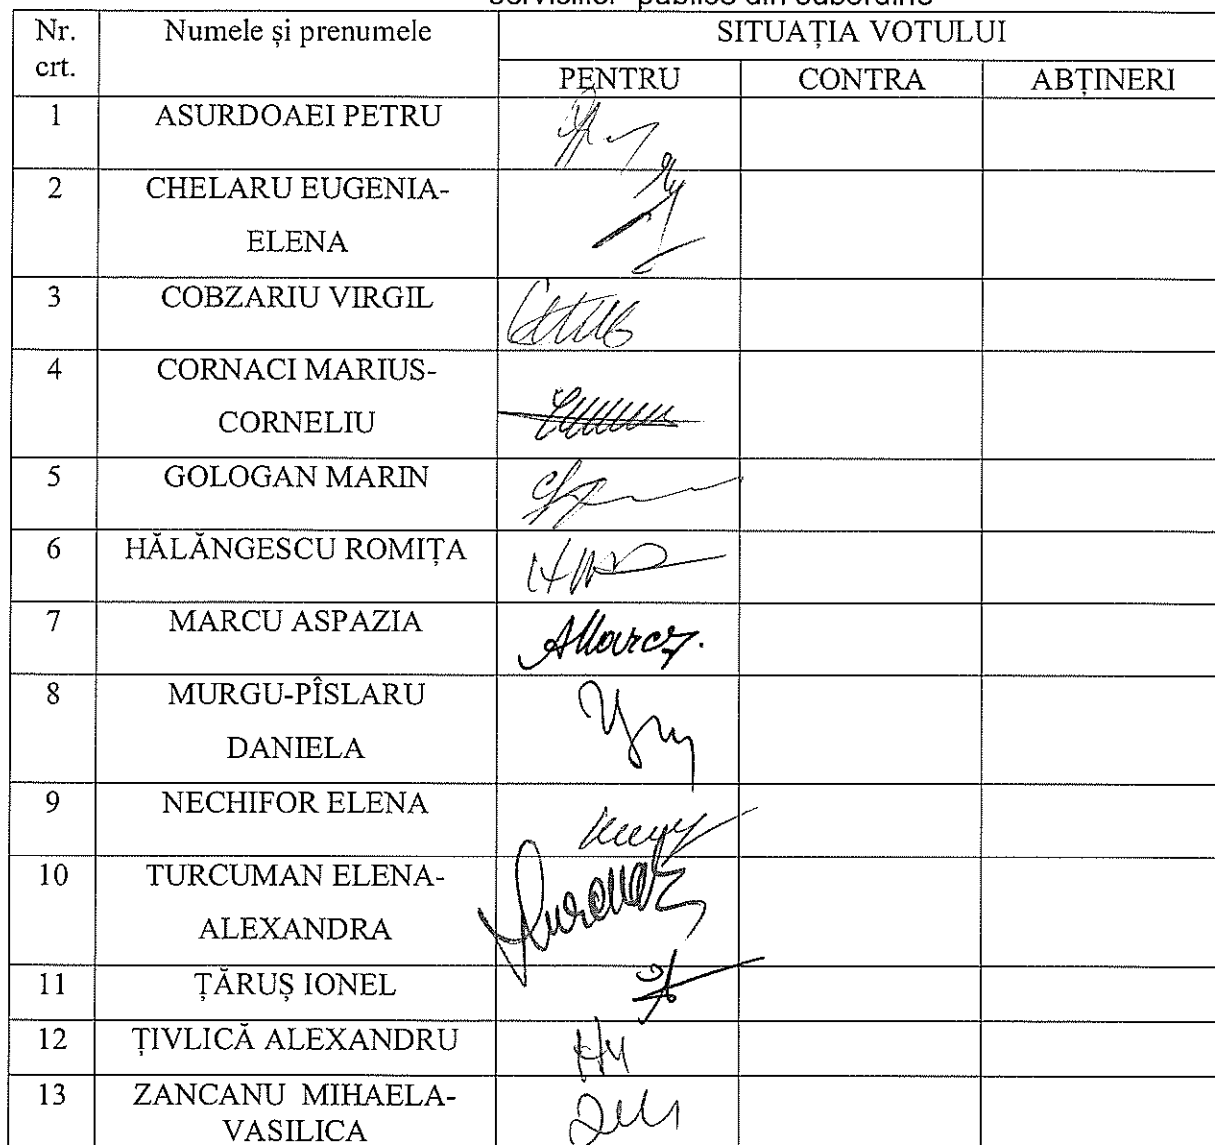 publice din subordine
Nr. Numele și prenumele SITUAȚIA VOTULUI
crt. PENTRU CONTRA ABȚINERI
1 ASURDOAEI PETRU
2 CHELARU EUGENIA-
ELENA
3 COBZARIU VIRGIL
4 CORNACI MARIUS-
CORNELIU
5 GOLOGAN MARIN
6 HĂLĂNGESCU ROMIȚA
7 MARCU ASPAZIA
8 MURGU-PÎSLARU
DANIELA
9 NECHIFOR ELENA
10 TURCUMAN ELENA-
ALEXANDRA
11 ȚĂRUȘ IONEL
12 ȚIVLICĂ ALEXANDRU
13 ZANCANU MIHAELA-
VASILICA